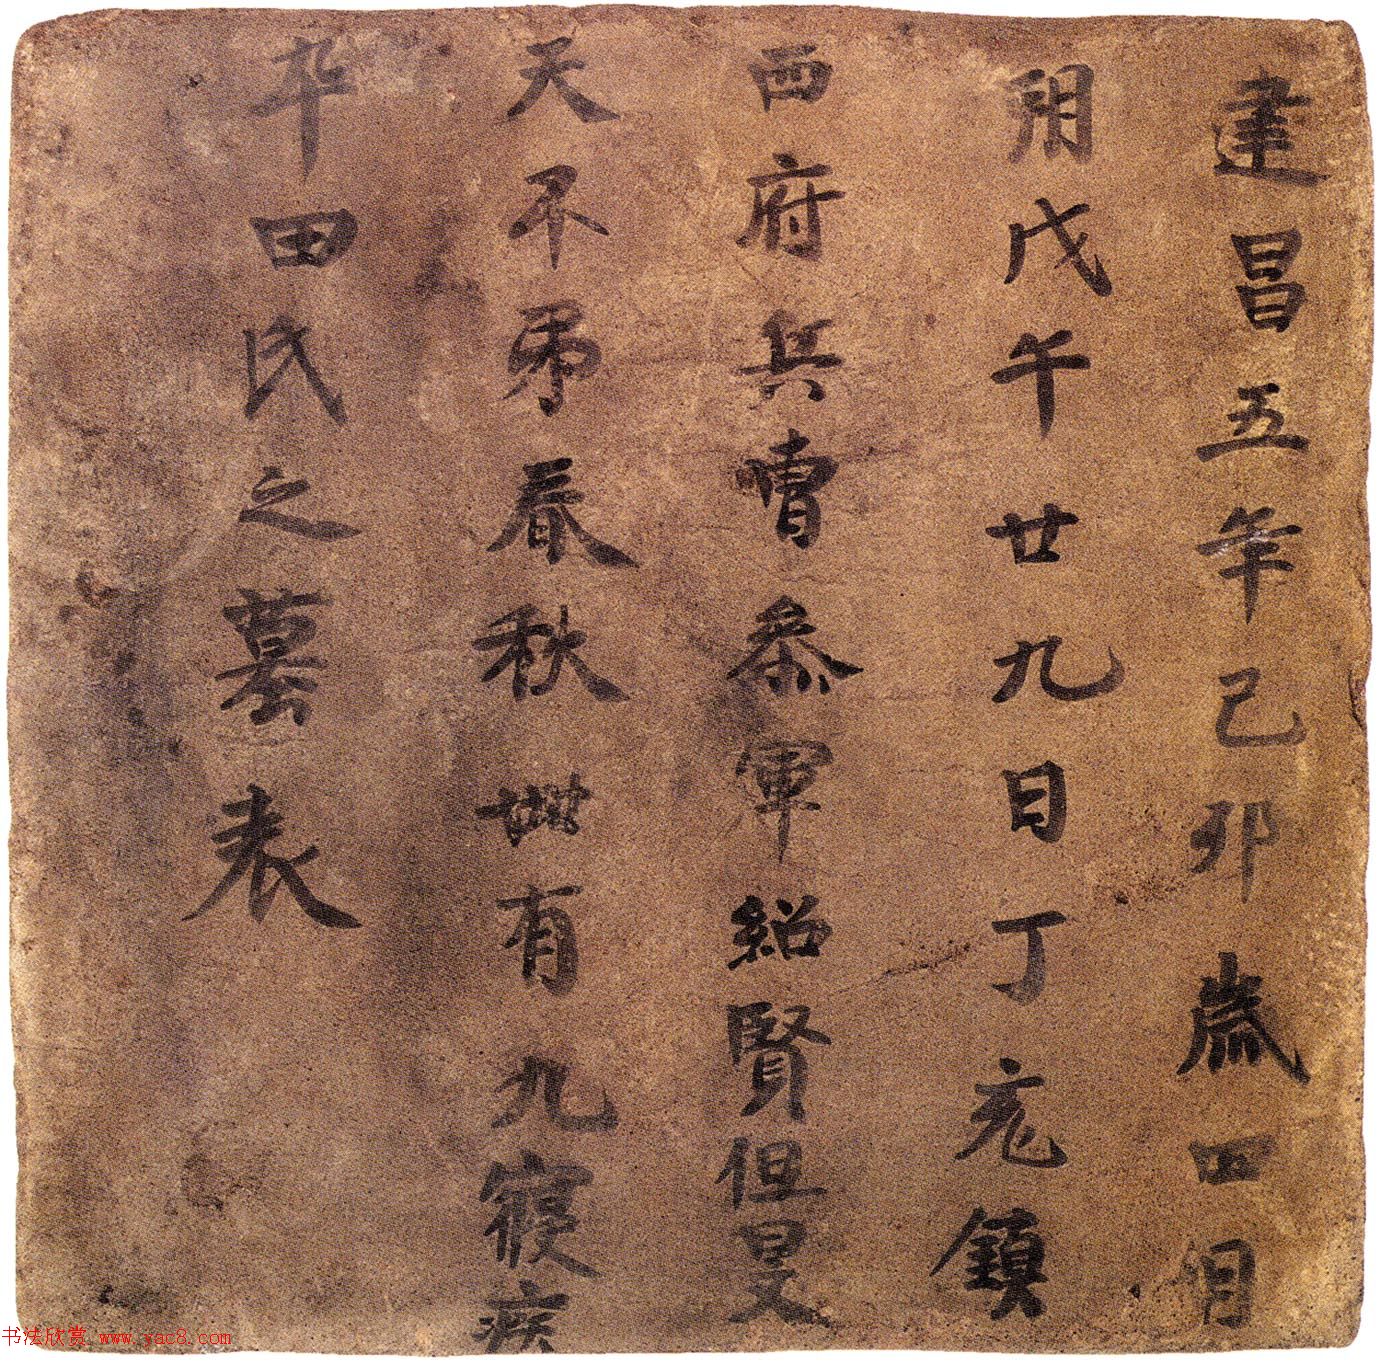 建昌五年己卯歲四月
朔戊午廿九日丁亥鎮
西府兵曹參軍紹賢但旻
天不弔春秋卌有九寢疾
卒田氏之墓表
书法欣赏 www.yac8.com